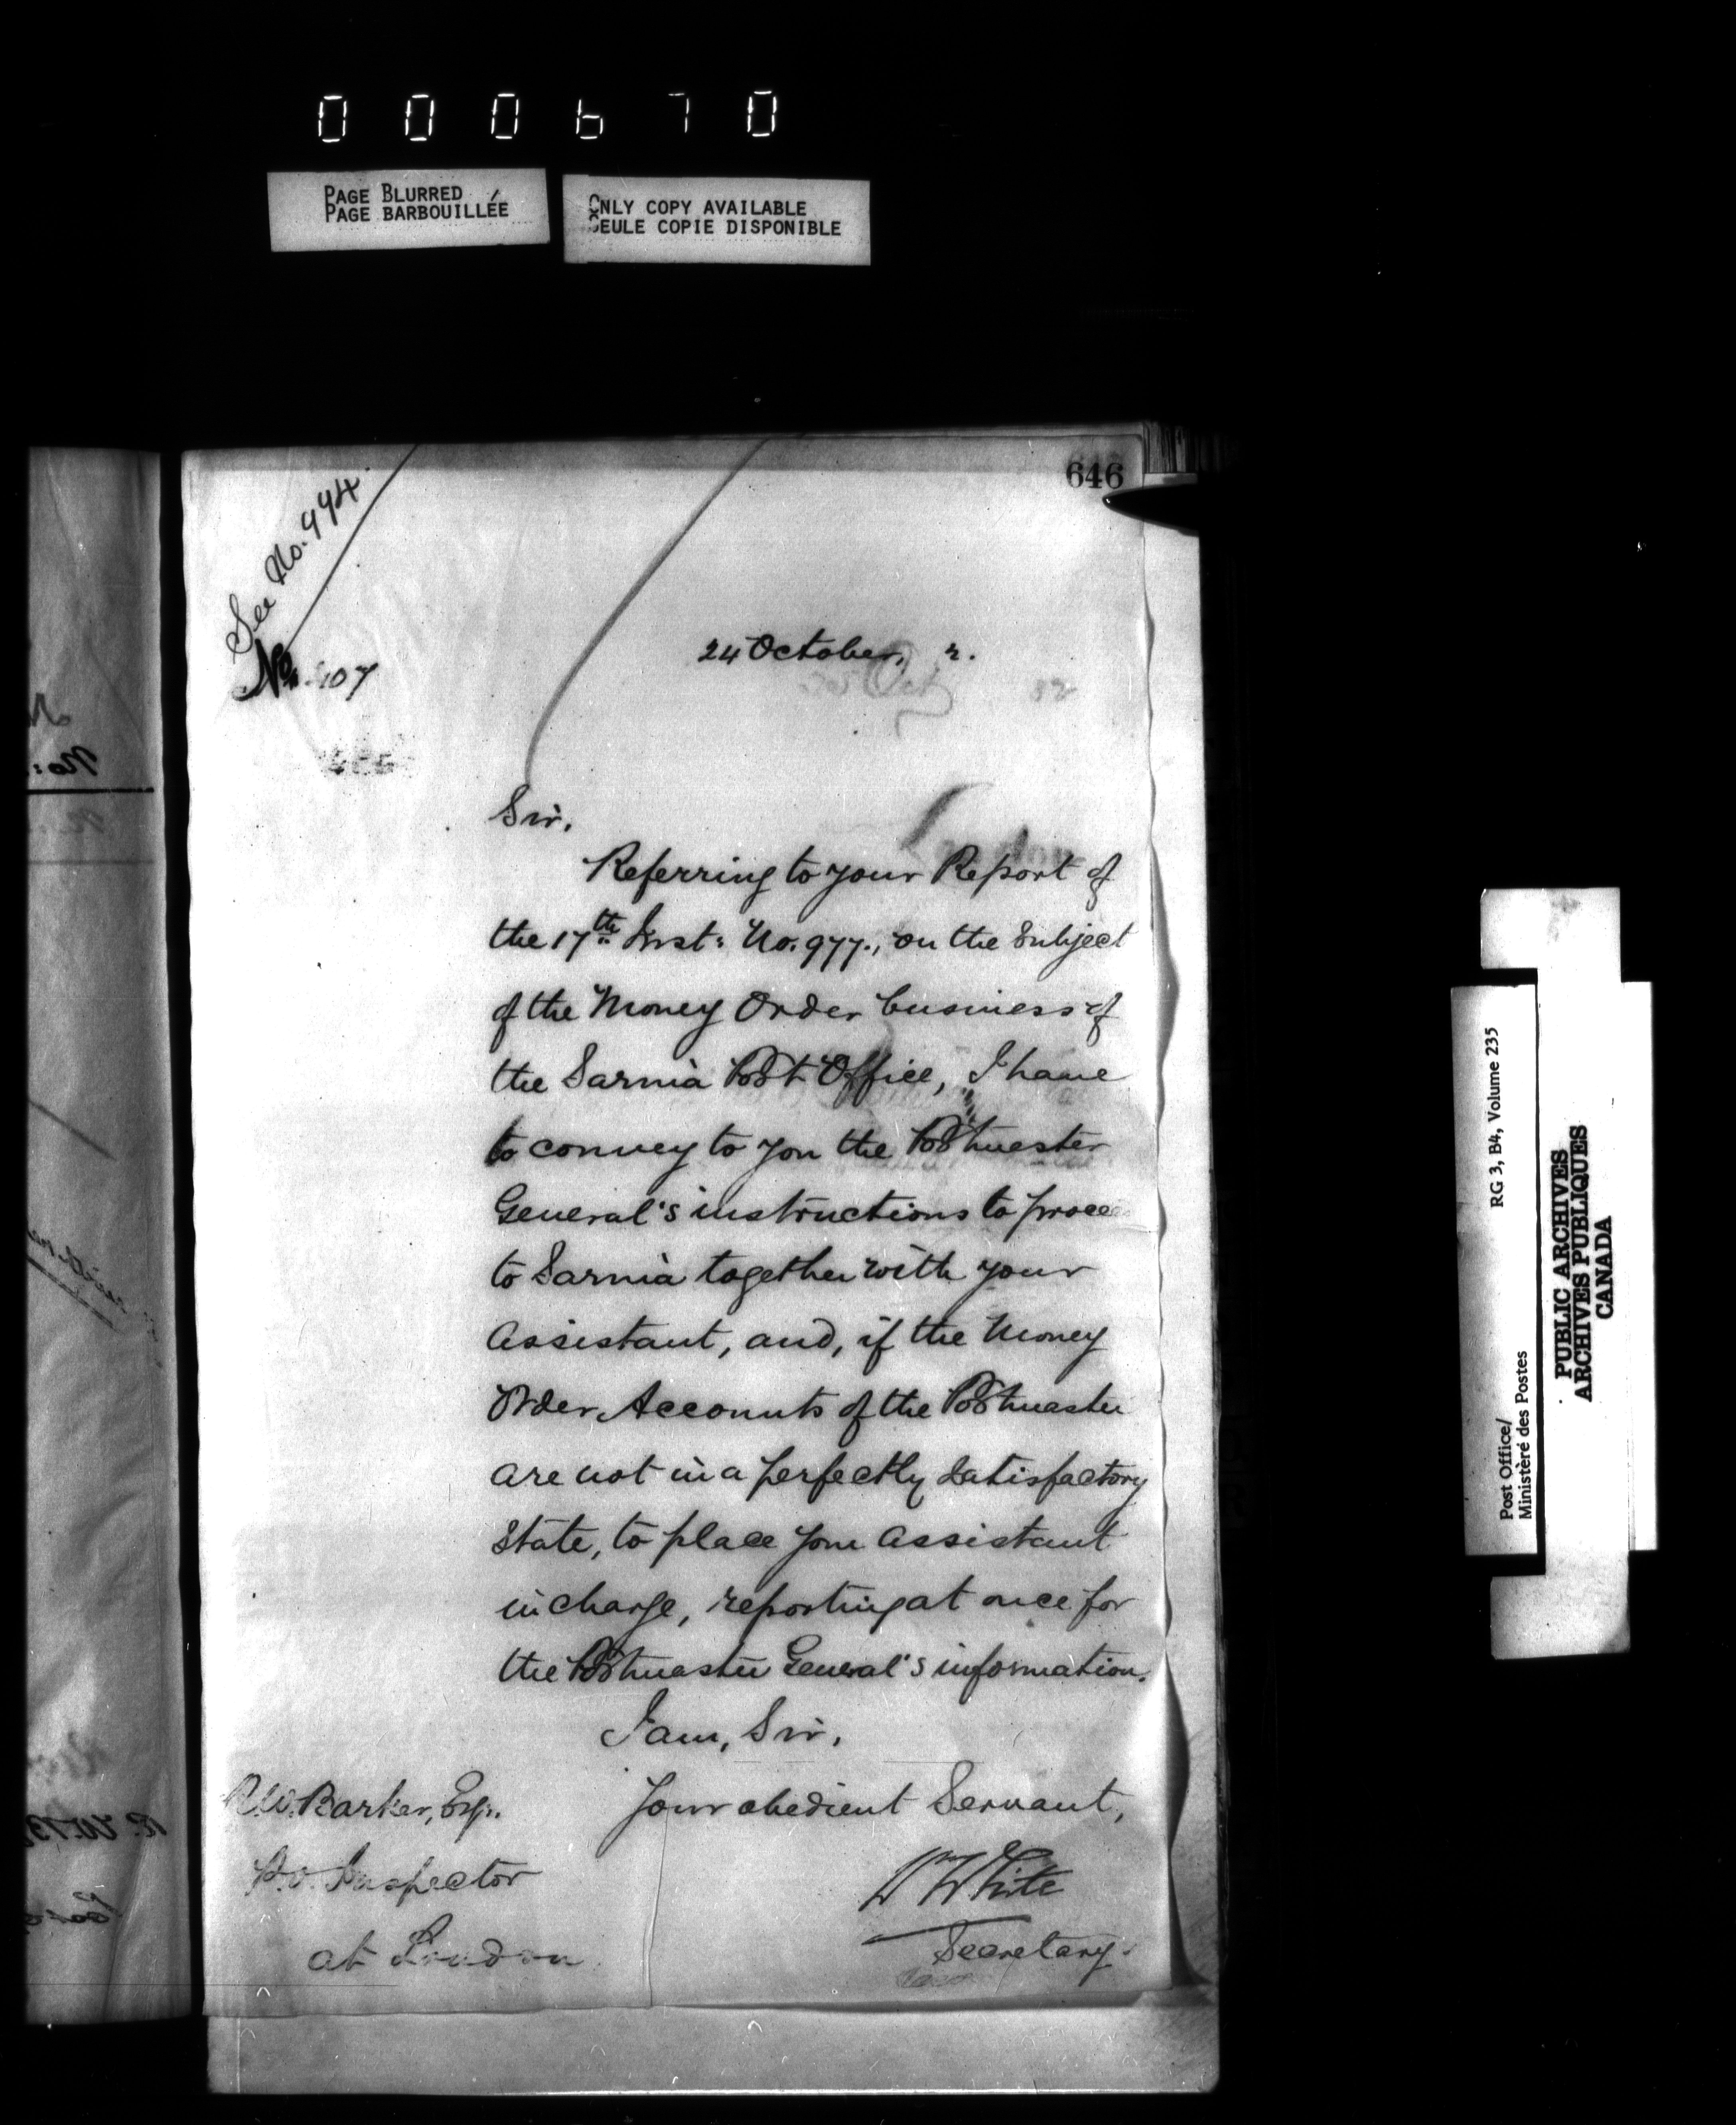 000670
PAGE BLURRED
PAGE BARBOUILLÉE
ONLY COPY AVAILABLE
SEULE COPIE DISPONIBLE
646
See No. 994
No. 107
24 October, 2.
Sir,
Referring to your Report of
the 17th Inst: No. 977., on the Subject
of the Money Order business of
the Sarnia Post Office, I have
to convey to you the Postmaster
General's instructions to procee
to Sarnia together with your
Assistant, and, if the Money
Order Accounts of the Postmaster
are not in a perfectly satisfactory
State, to place your Assistant
in charge, reporting at once for
the Postmaster General's information.
I am, Sir,
Your obedient Servant,
R.W. Barker, Esq.
P.O. Inspector
at London
W White
Secretary.
Post Office/
Ministère des Postes
RG 3, B4, Volume 235
PUBLIC ARCHIVES
ARCHIVES PUBLIQUES
CANADA